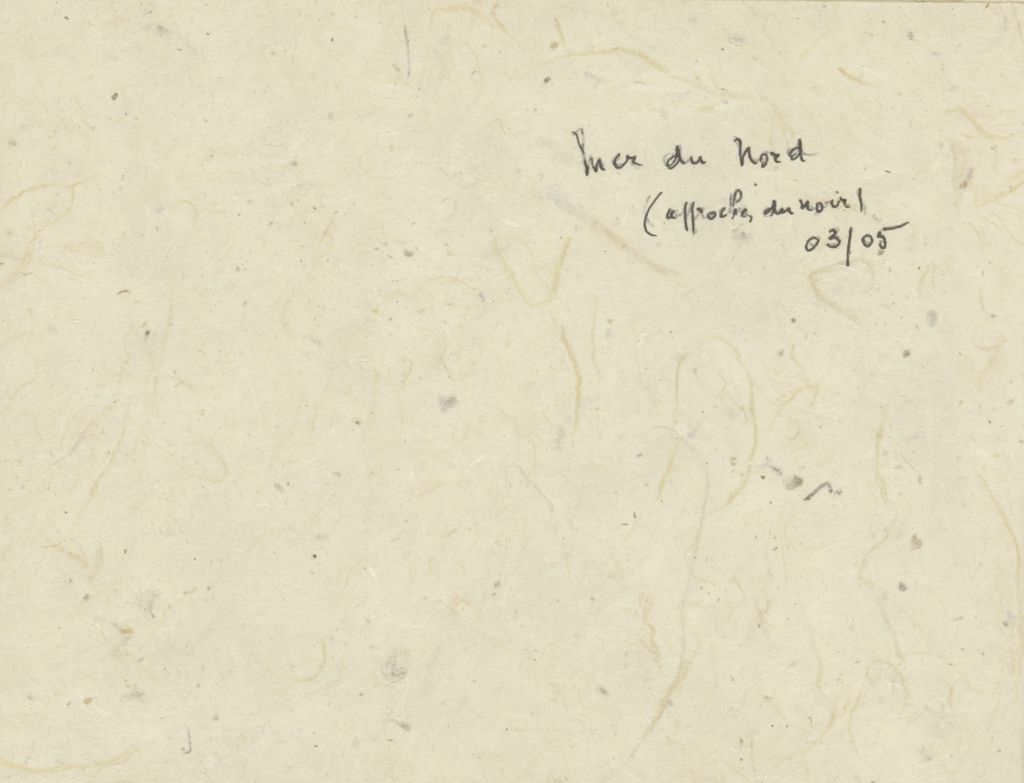 Mer du Nord
(approches du noir)
03/05